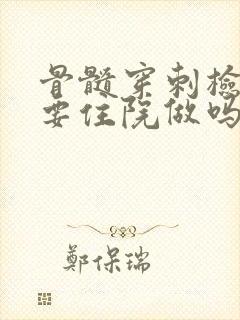 骨髓穿刺檢
要住院做嗎
鄭保瑞